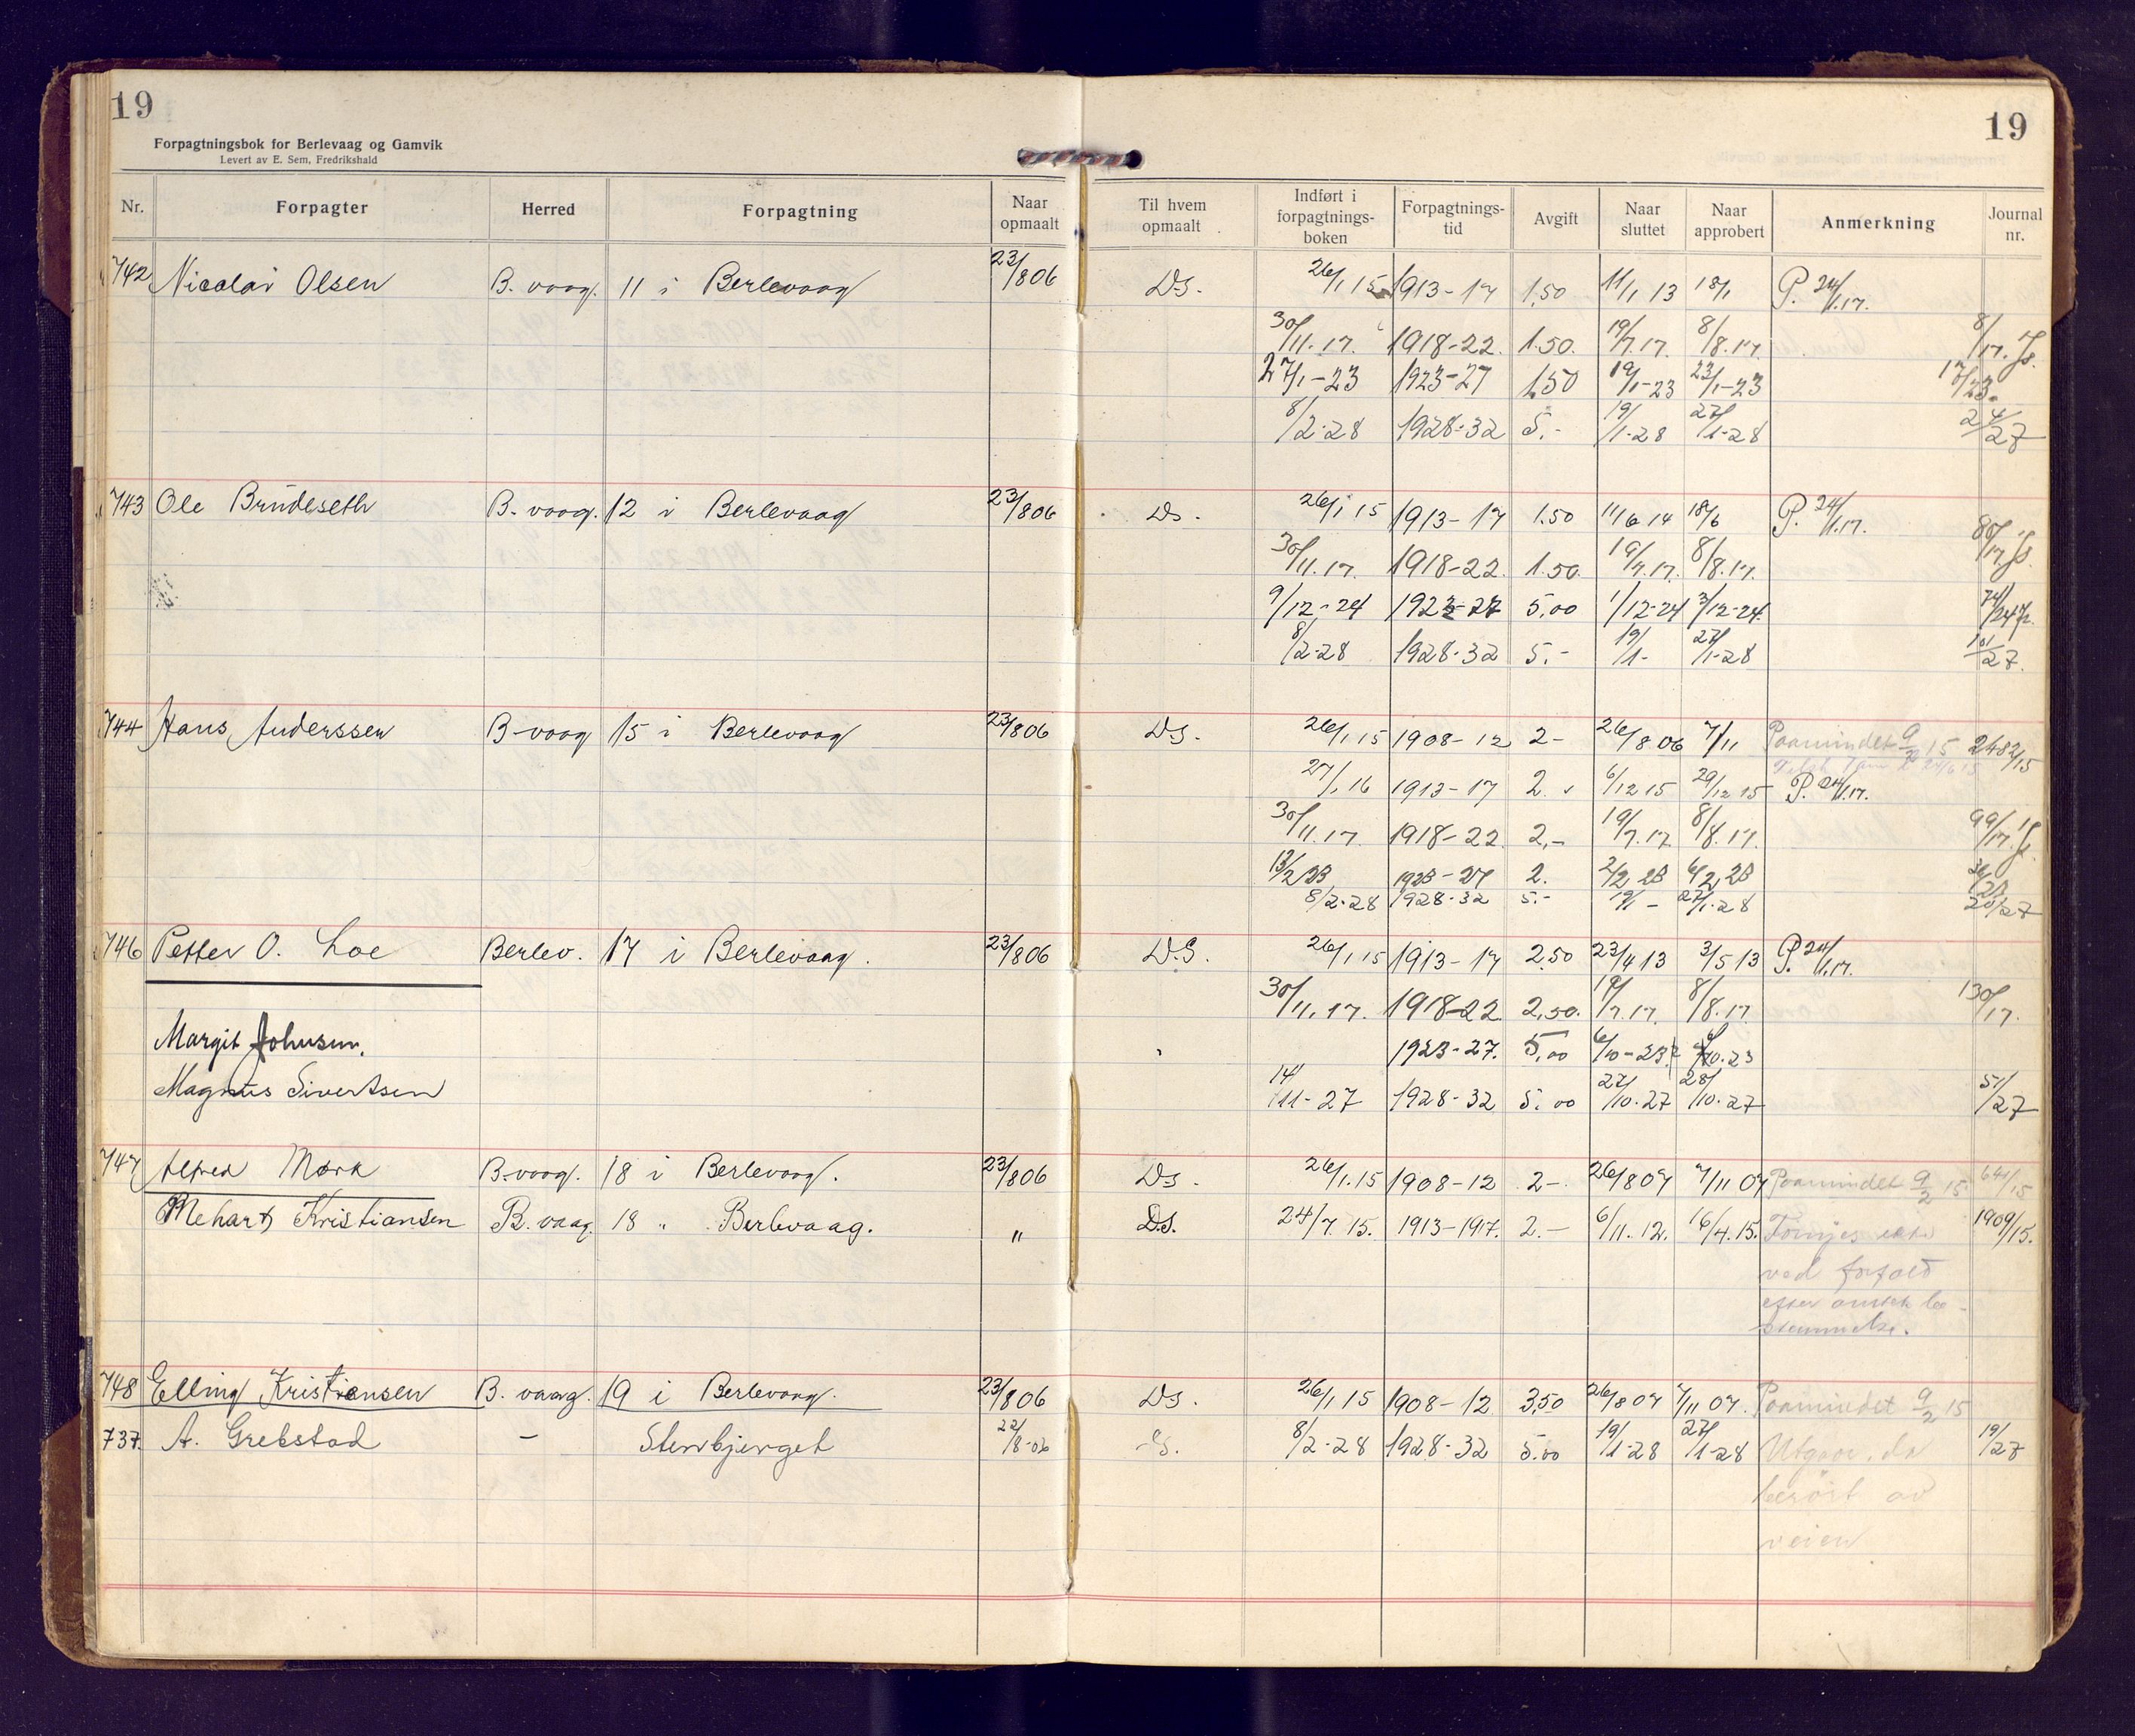 19
19
Forpagtningsbok for Berlevaag og Gamvik
Levert av E. Sem, Fredrikshald
Nr. Forpagter Herred Forpagtning Naar opmaalt Til hvem opmaalt Indført i forpagtnings-boken Forpagtnings-tid Avgift Naar sluttet Naar approbert Anmerkning Journal nr.
742 Nicolai Olsen B. vaag. 11 i Berlevaag 23/8 06 Ds. 26/1 15 1913-17 1,50 11/1 13 18/1 P. 24/1.17.
30/11.17. 1918-22. 1.50. 19/7.17. 8/8.17. 8/17.
27/1-23 1923-27 1,50 19/1-23 23/1-23
8/2-28 1928-32 5.- 19/1-28 27/1-28 24/27
743 Ole Brudeseth B. vaag. 12 i Berlevaag 23/8 06 Ds. 26/1 15 1913-17 1.50 11/6 14 18/6 P. 24/1.17.
30/11.17. 1918-22. 1.50. 19/7.17. 8/8.17. 80/17
9/12-24 1923-27 5,00 1/12-24 3/12-24. 74/24
8/2-28 1928-32 5.- 19/1- 27/1-28 10/27.
744 Hans Anderssen B-vaag 15 i Berlevaag 23/8 06 Ds. 26/1 15 1908-12 2- 26/8 06 7/11 Paamindet 9/2 15 2482/15
27/1 16 1913-17 2. 6/12 15 29/12 15 P. 24/1.17.
30/11.17. 1918-22. 2,- 19/7.17 8/8.17. 99/17.
13/2 23 1923-27 2. 2/2 23 6/2 23
8/2-28 1928-32 5.- 19/1 - 27/1-28 20/27
746 Petter O. Loe Berlev. 17 i Berlevaag. 23/8 06 D.S. 26/1 15 1913-17 2,50 23/4 13 3/5 13 P. 24/1.17.
30/11.17. 1918-22. 2,50. 19/7.17. 8/8.17. 130/17.
Margit Johnsen. 1923-27. 5,00 6/10-23 /10.23
Magnus Sivertsen 14/11-27 1928-32 5.00 27/10-27 28/10-27 51/27
747 Alfred Mørk B.vaag. 18 i Berlevaag. 23/8 06 Ds. 26/1.15 1908-12 2- 26/8 07 7/11 07 Paamindet 9/2 15 641/15
Mehart Kristiansen B. vaag. 18 " Berlevaag. " D.S. 24/7 15. 1913-1917. 2.- 6/11.12. 16/4.15. Fornyes ikke 1909/15.
ved forfald
efter amtets be-
stemmelse.
748 Elling Kristiansen B. vaag. 19 i Berlevaag. 23/8 06 Ds. 26/1 15 1908-12 3,50 26/8 07 7/11 07. Paamindet 9/2 15
737. A. Grebstad - Stenbjerget 22/8-06 S. 8/2-28 1928-32 5.00 19/1-28 27/1-28 Utgaar, da 19/27
berört av
veien